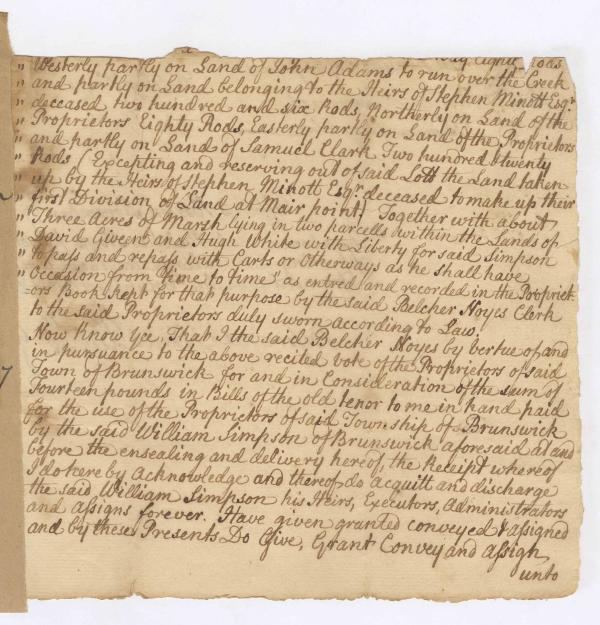 Eighty Rods
" Westerly partly on Land of John Adams to run over the Creek
" and partly on Land belonging to the Heirs of Stephen Minott Esqr.
" deceased two hundred and six Rods, Northerly on Land of the
" Proprietors Eighty Rods, Easterly partly on Land of the Proprietors
" and partly on Land of Samuel Clark Two hundred & twenty
" Rods (Excepting and reserving out of said Lott the Land taken
" up by the Heirs of Stephen Minott Esqr. deceased to make up their
" first Division of Land at Mair point) Together with about
" Three Acres of Marsh lying in two parcells within the Lands of
" David Giveen and Hugh White with Liberty for said Simpson
" to pass and repass with Carts or Otherways as he shall have
" Occasion from Time to Time" as entred and recorded in the Propriet-
=ors Book kept for that purpose by the said Belcher Noyes Clerk
to the said Proprietors duly sworn according to Law.
Now Know Yee, That I the said Belcher Noyes by vertue of and
in pursuance to the above recited vote of the Proprietors of said
Town of Brunswick for and in Consideration of the sum of
Fourteen pounds in Bills of the old tenor to me in hand paid
for the use of the Proprietors of said Township of Brunswick
by the said William Simpson of Brunswick aforesaid at and
before the ensealing and delivery hereof, the Receipt whereof
I do hereby Acknowledge and thereof do Acquitt and discharge
the said William Simpson his Heirs, Executors, Administrators
and Assigns forever. Have given granted conveyed & assigned
and by these Presents Do Give, Grant Convey and Assign
unto